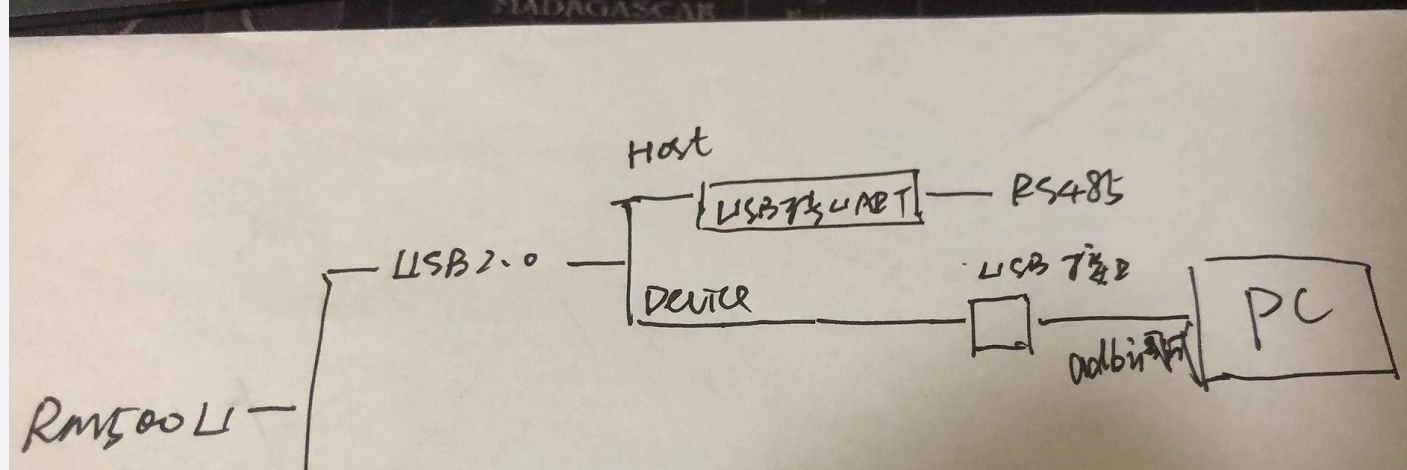 MADAGASCAR
Host
USB转UART
RS485
USB2.0
USB接口
Device
PC
adb调试
RM500U